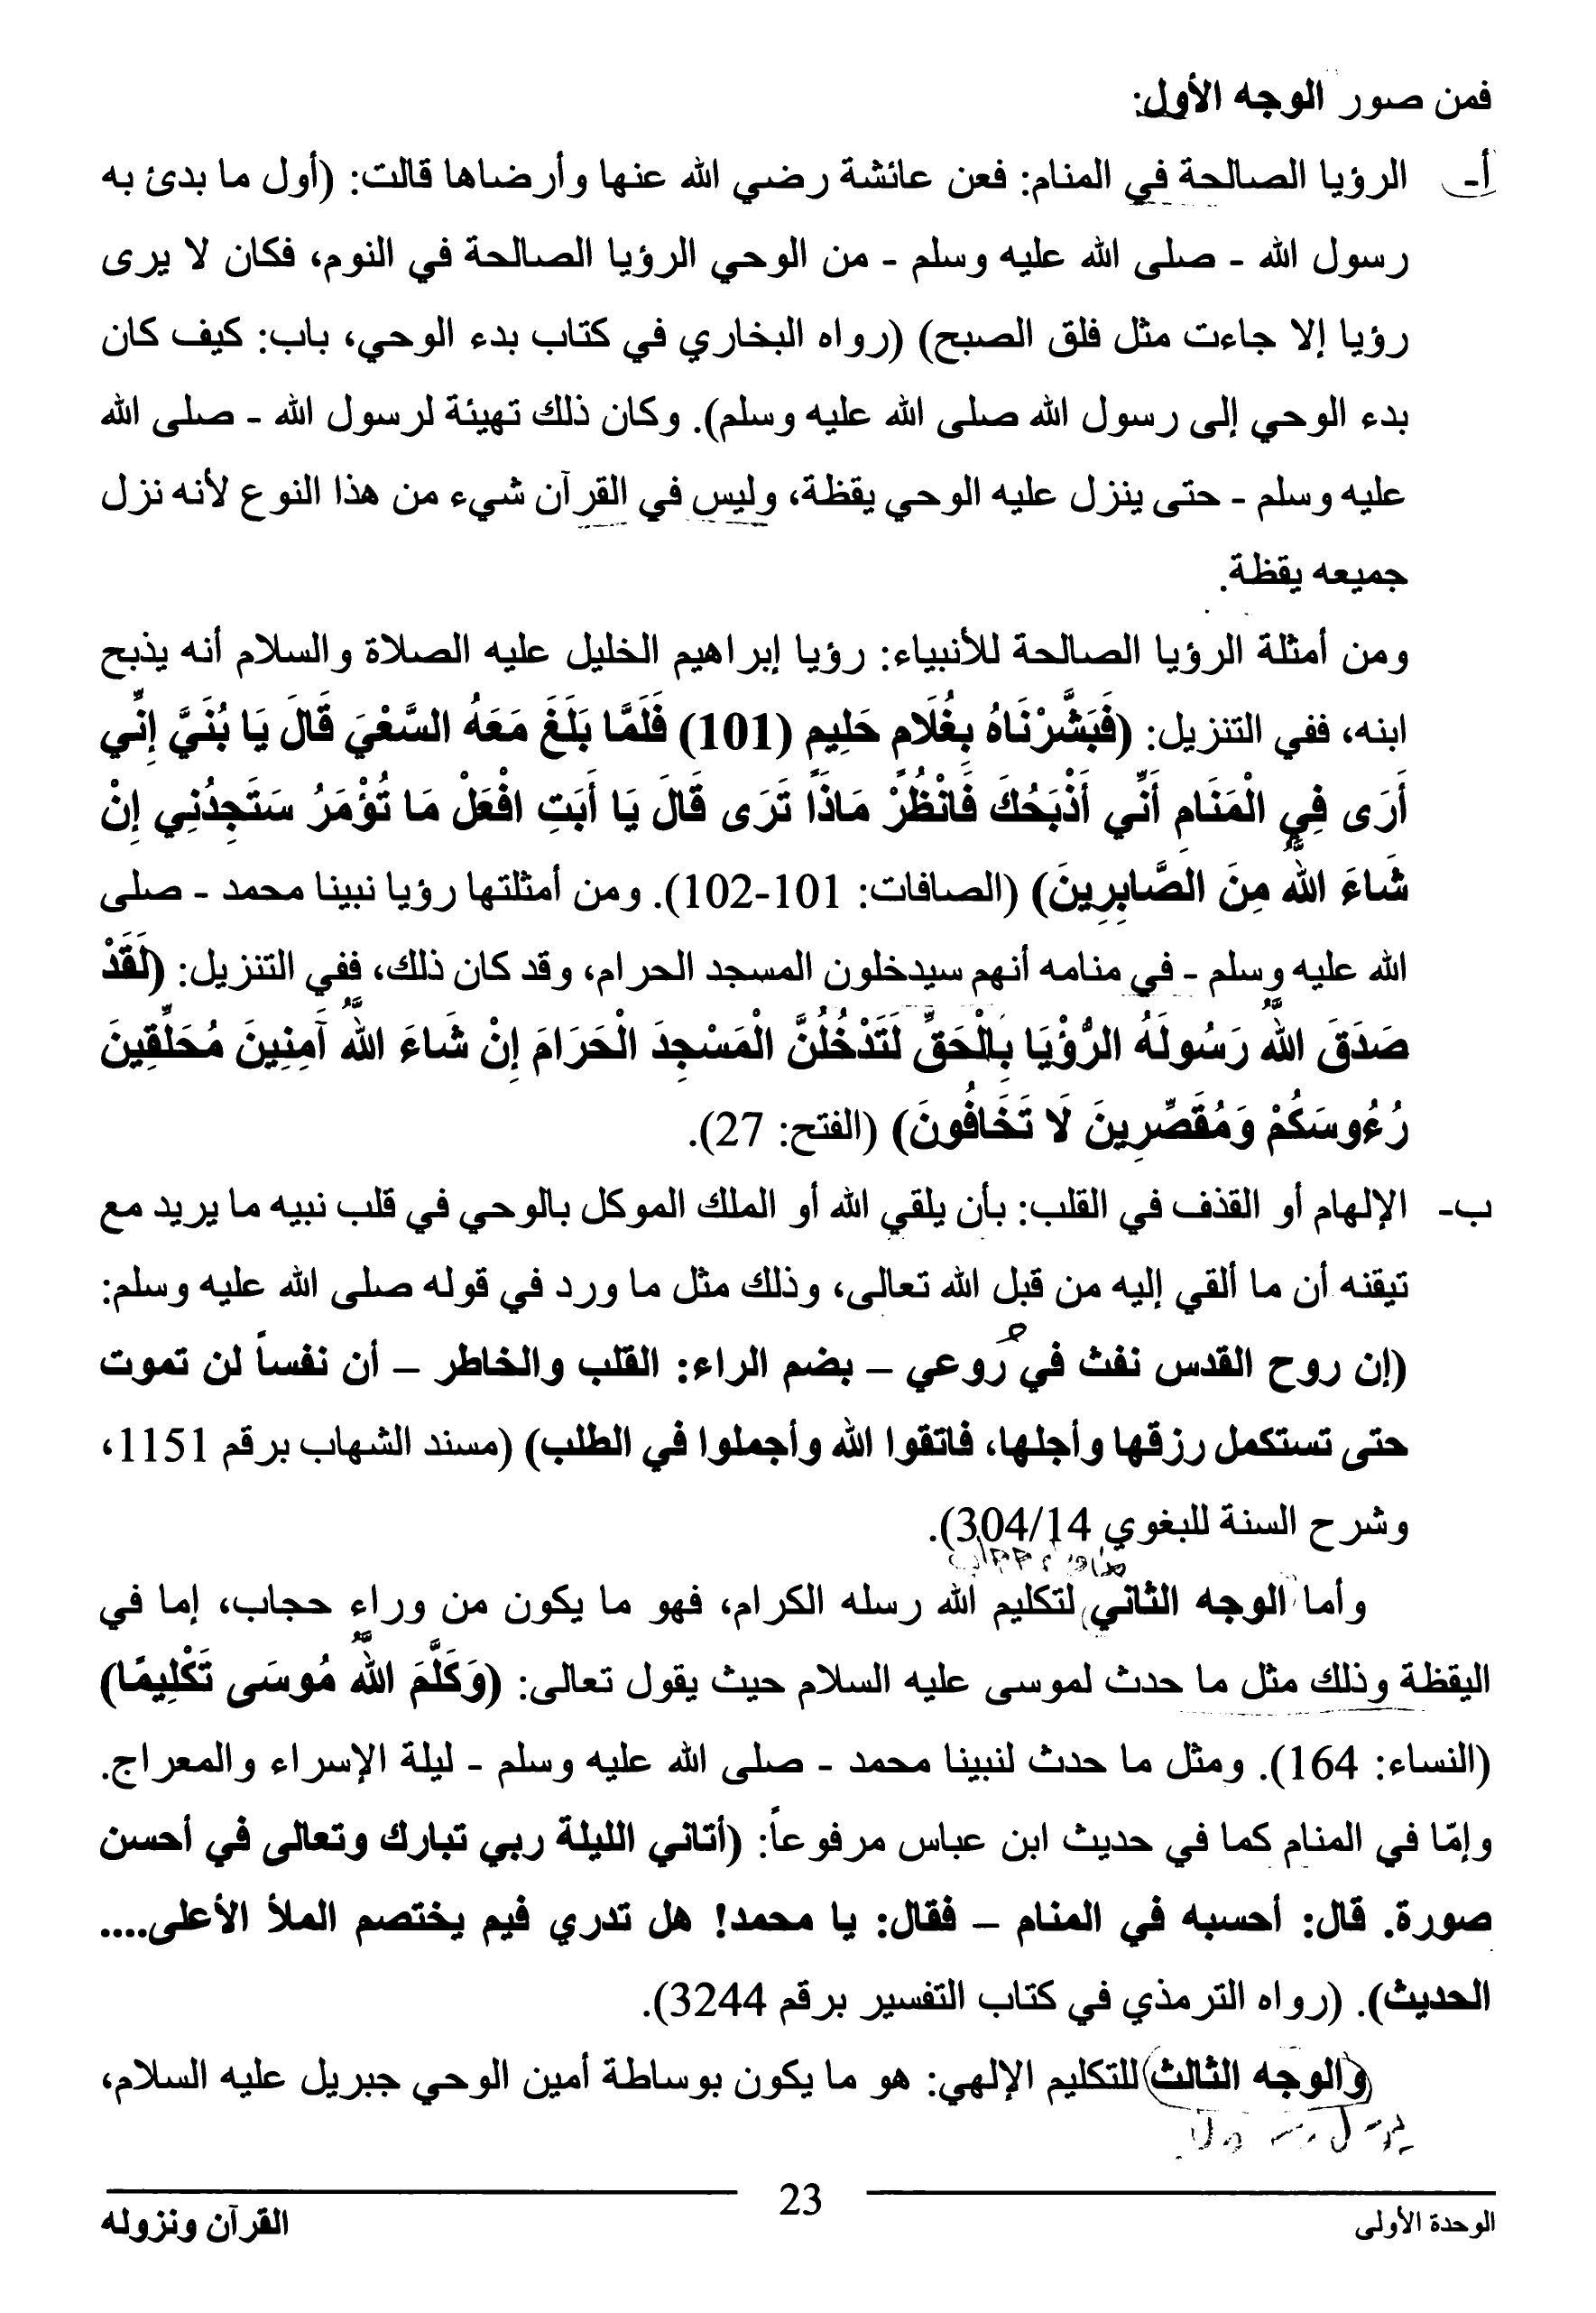 فمن صور الوجه الأول:
أ- الرؤيا الصالحة في المنام: فعن عائشة رضي الله عنها وأرضاها قالت: (أول ما بدئ به
رسول الله - صلى الله عليه وسلم - من الوحي الرؤيا الصالحة في النوم، فكان لا يرى
رؤيا إلا جاءت مثل فلق الصبح) (رواه البخاري في كتاب بدء الوحي، باب: كيف كان
بدء الوحي إلى رسول الله صلى الله عليه وسلم). وكان ذلك تهيئة لرسول الله - صلى الله
عليه وسلم - حتى ينزل عليه الوحي يقظة، وليس في القرآن شيء من هذا النوع لأنه نزل
جميعه يقظة.
ومن أمثلة الرؤيا الصالحة للأنبياء: رؤيا إبراهيم الخليل عليه الصلاة والسلام أنه يذبح
ابنه، ففي التنزيل: (فَبَشَّرْنَاهُ بِغُلَامٍ حَلِيمٍ (101) فَلَمَّا بَلَغَ مَعَهُ السَّعْيَ قَالَ يَا بُنَيَّ إِنِّي
أَرَى فِي الْمَنَامِ أَنِّي أَذْبَحُكَ فَانْظُرْ مَاذَا تَرَى قَالَ يَا أَبَتِ افْعَلْ مَا تُؤْمَرُ سَتَجِدُنِي إِنْ
شَاءَ اللَّهُ مِنَ الصَّابِرِينَ) (الصافات: 101-102). ومن أمثلتها رؤيا نبينا محمد - صلى
الله عليه وسلم - في منامه أنهم سيدخلون المسجد الحرام، وقد كان ذلك، ففي التنزيل: (لَقَدْ
صَدَقَ اللَّهُ رَسُولَهُ الرُّؤْيَا بِالْحَقِّ لَتَدْخُلُنَّ الْمَسْجِدَ الْحَرَامَ إِنْ شَاءَ اللَّهُ آمِنِينَ مُحَلِّقِينَ
رُءُوسَكُمْ وَمُقَصِّرِينَ لَا تَخَافُونَ) (الفتح: 27).
ب- الإلهام أو القذف في القلب: بأن يلقي الله أو الملك الموكل بالوحي في قلب نبيه ما يريد مع
تيقنه أن ما ألقي إليه من قبل الله تعالى، وذلك مثل ما ورد في قوله صلى الله عليه وسلم:
(إن روح القدس نفث في رُوعي – بضم الراء: القلب والخاطر – أن نفساً لن تموت
حتى تستكمل رزقها وأجلها، فاتقوا الله وأجملوا في الطلب) (مسند الشهاب برقم 1151،
وشرح السنة للبغوي 304/14).
وأما الوجه الثاني لتكليم الله رسله الكرام، فهو ما يكون من وراء حجاب، إما في
اليقظة وذلك مثل ما حدث لموسى عليه السلام حيث يقول تعالى: (وَكَلَّمَ اللَّهُ مُوسَى تَكْلِيمًا)
(النساء: 164). ومثل ما حدث لنبينا محمد - صلى الله عليه وسلم - ليلة الإسراء والمعراج.
وإمّا في المنام كما في حديث ابن عباس مرفوعاً: (أتاني الليلة ربي تبارك وتعالى في أحسن
صورة. قال: أحسبه في المنام – فقال: يا محمد! هل تدري فيم يختصم الملأ الأعلى....
الحديث). (رواه الترمذي في كتاب التفسير برقم 3244).
والوجه الثالث للتكليم الإلهي: هو ما يكون بوساطة أمين الوحي جبريل عليه السلام،
الوحدة الأولى 23 القرآن ونزوله